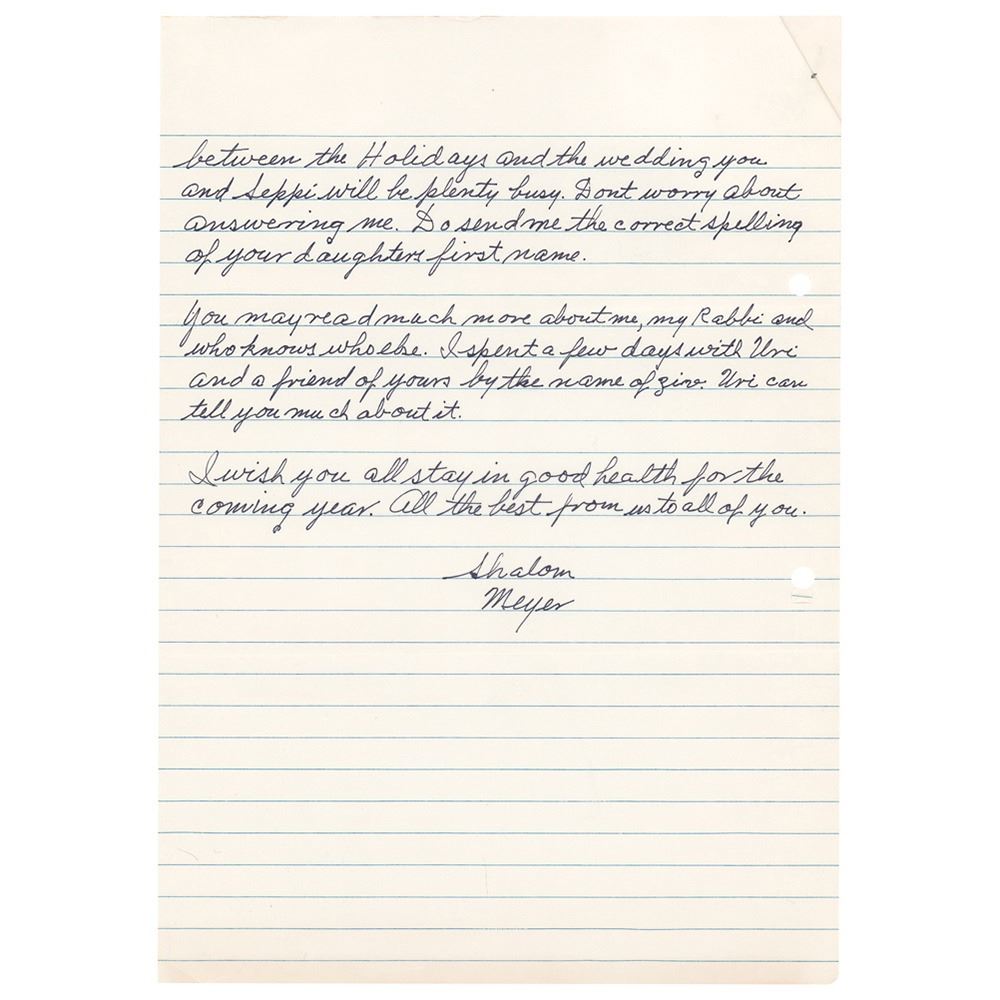 between the Holidays and the wedding you
and Seppi will be plenty busy. Dont worry about
answering me. Do send me the correct spelling
of your daughters first name.
You may read much more about me, my Rabbi and
who knows who else. I spent a few days with Uri
and a friend of yours by the name of ziv. Uri can
tell you much about it.
I wish you all stay in good health for the
coming year. All the best from us to all of you.
Shalom
Meyer